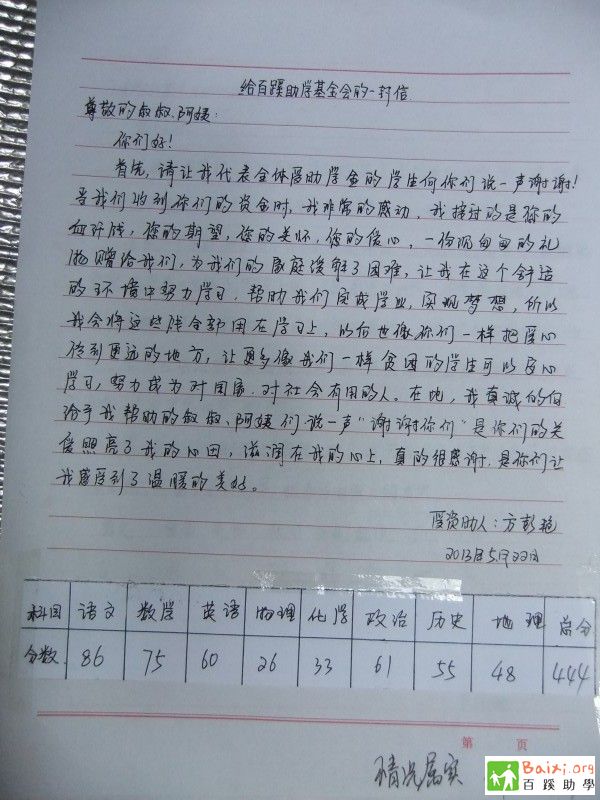 给百蹊助学基金会的一封信
尊敬的叔叔、阿姨:
你们好!
首先,请让我代表全体受助学金的学生向你们说一声谢谢!
当我们收到你们的资金时,我非常的感动,我接过的是你的
血汗钱,您的期望,您的关怀,您的信心,一份沉甸甸的礼
物赠给我们,为我们的家庭缓解了困难,让我在这个舒适
的环境中努力学习,帮助我们完成学业,实现梦想,所以
我会将这些钱全部用在学习上,以后也像你们一样把爱心
传到更远的地方,让更多像我们一样贫困的学生可以安心
学习,努力成为对国家、对社会有用的人。在此,我真诚的向
给予我帮助的叔叔、阿姨们说一声“谢谢你们”是你们的关
爱照亮了我的心田,滋润在我的心上,真的很感谢,是你们让
我感受到了温暖的美好。
受资助人:方彭艳
2013年5月22日
科目 语文 数学 英语 物理 化学 政治 历史 地理 总分
分数 86 75 60 26 33 61 55 48 444
第 页
情况属实
Baixi.org
百蹊助學